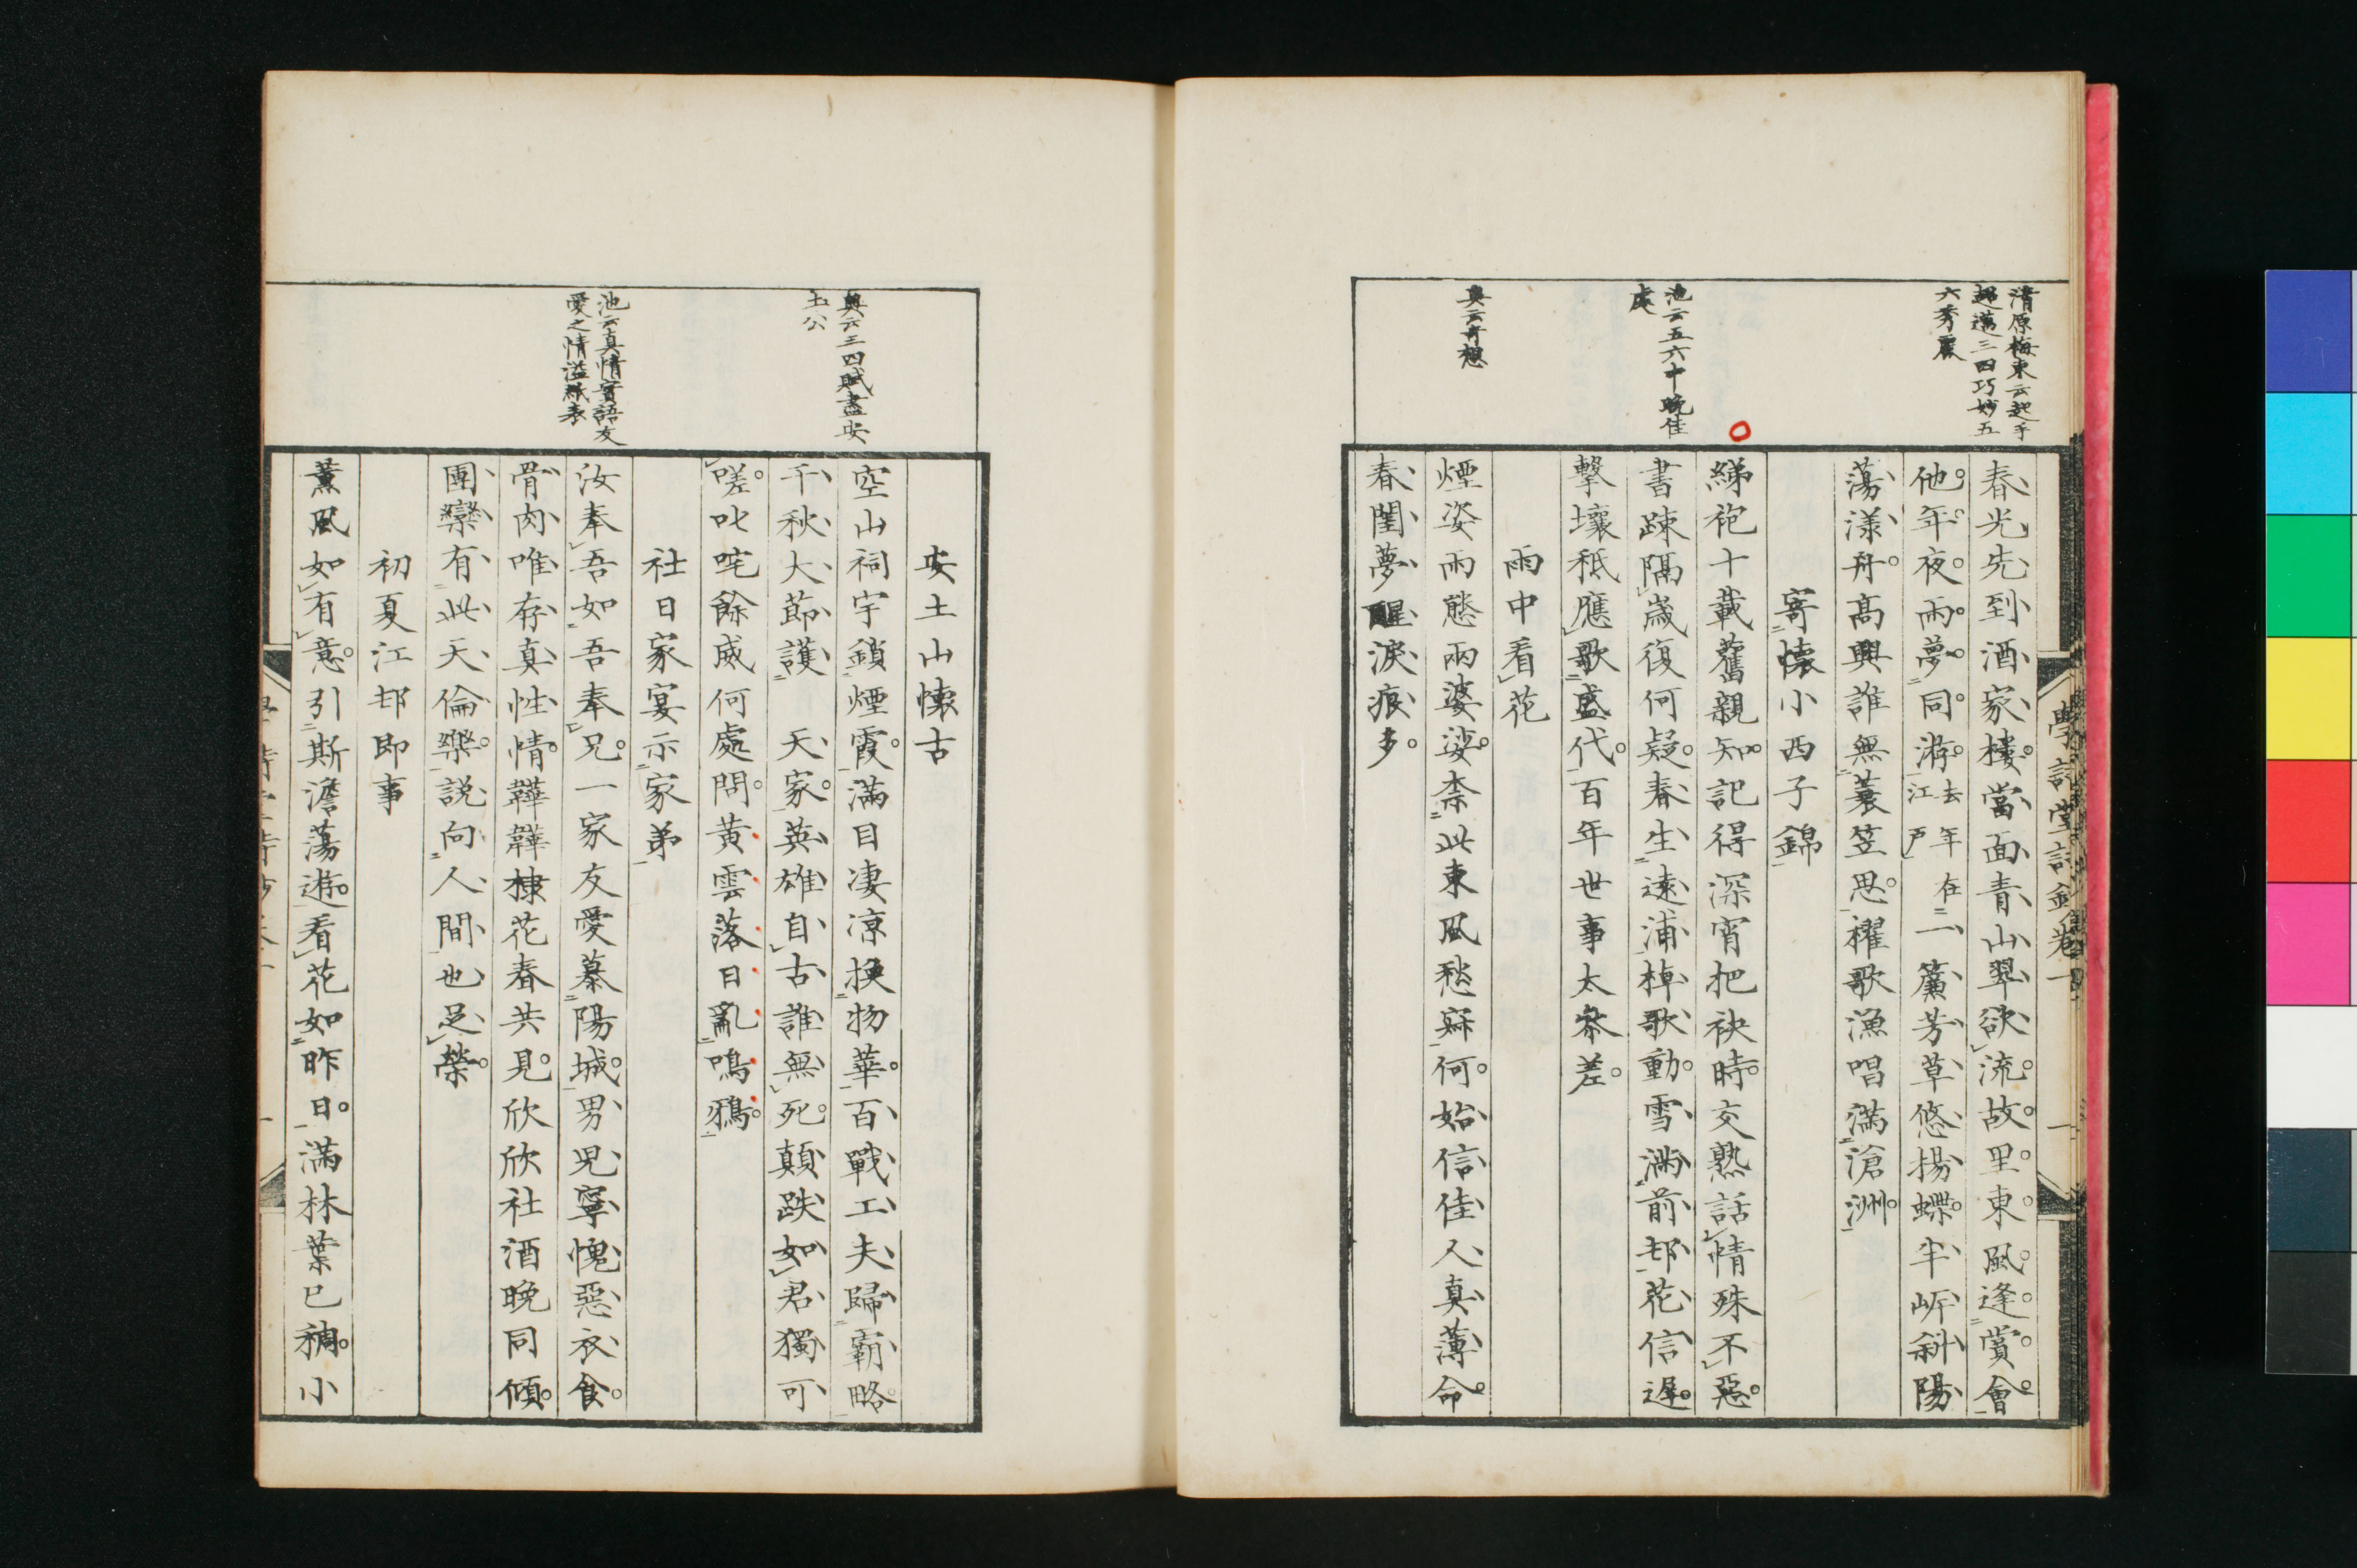 清原梅東云起手
超邁三四巧妙五
六秀麗
春光先到酒家樓當面青山翠欲流故里東風逢賞會
他年夜雨夢同游去年在江戸一簾芳草悠揚蝶半岍斜陽
蕩漾舟高興誰無蓑笠思櫂歌漁唱滿滄洲
寄懷小西子錦
池云五六十晚佳
處
綈袍十載舊親知記得深宵把袂時交熟話情殊不惡
書疎隔歲復何疑春生遠浦棹歌動雪滿前邨花信遲
擊壤秖應歌盛代百年世事太參差
雨中看花
奥云奇想
煙姿雨態兩婆娑柰此東風愁寐何始信佳人真薄命
春閨夢醒淚痕多
安土山懷古
奥云三四賦盡安
土公
空山祠宇鎖煙霞滿目凄凉換物華百戰工夫歸霸略
千秋大莭護天家英雄自古誰無死顛跌如君獨可
嗟叱咤餘威何處問黃雲落日亂鳴鴉
社日家宴示家弟
池云真情實語友
愛之情溢紙表
汝奉吾如吾奉兄一家友愛慕陽城男児寧愧惡衣食
骨肉唯存真性情韡韡棣花春共見欣欣社酒晚同傾
團欒有此天倫樂説向人間也足榮
初夏江邨即事
薰風如有意引斯澹蕩遊看花如昨日滿林葉已稠小